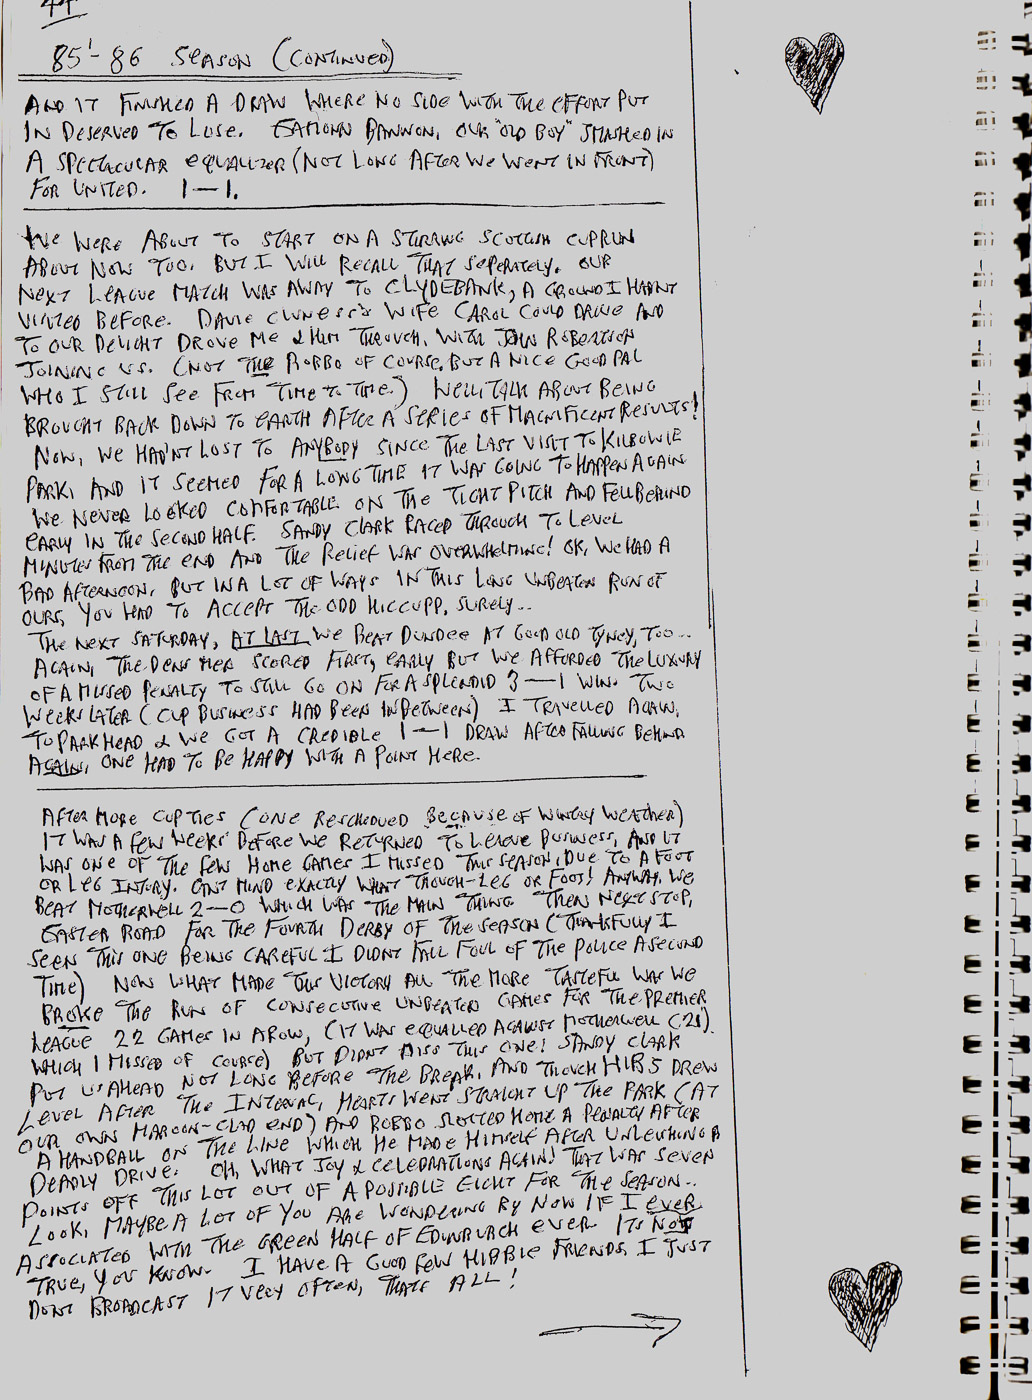 44
85'-86 SEASON (CONTINUED)
AND IT FINISHED A DRAW WHERE NO SIDE WITH THE EFFORT PUT
IN DESERVED TO LOSE. EAMONN BANNON, OUR "OLD BOY" SMASHED IN
A SPECTACULAR EQUALIZER (NOT LONG AFTER WE WENT IN FRONT)
FOR UNITED. 1—1.
WE WERE ABOUT TO START ON A STIRRING SCOTTISH CUP RUN
ABOUT NOW TOO, BUT I WILL RECALL THAT SEPERATELY. OUR
NEXT LEAGUE MATCH WAS AWAY TO CLYDEBANK, A GROUND I HADN'T
VISITED BEFORE. DAVIE WIFE CAROL COULD DRIVE AND
TO OUR DELIGHT DROVE ME & HIM THROUGH, WITH JOHN ROBERTSON
JOINING US. (NOT THE ROBBO OF COURSE, BUT A NICE GOOD PAL
WHO I STILL SEE FROM TIME TO TIME.) WELL! TALK ABOUT BEING
BROUGHT BACK DOWN TO EARTH AFTER A SERIES OF MAGNIFICENT RESULTS!
NOW, WE HADN'T LOST TO ANYBODY SINCE THE LAST VISIT TO KILBOWIE
PARK, AND IT SEEMED FOR A LONG TIME IT WAS GOING TO HAPPEN AGAIN
WE NEVER LOOKED COMFORTABLE ON THE TIGHT PITCH AND FELL BEHIND
EARLY IN THE SECOND HALF. SANDY CLARK RACED THROUGH TO LEVEL
MINUTES FROM THE END AND THE RELIEF WAS OVERWHELMING! OK, WE HAD A
BAD AFTERNOON, BUT IN A LOT OF WAYS IN THIS LONG UNBEATEN RUN OF
OURS, YOU HAD TO ACCEPT THE ODD HICCUPP, SURELY..
THE NEXT SATURDAY, AT LAST WE BEAT DUNDEE AT GOOD OLD TYNEY, TOO...
AGAIN, THE DENS MEN SCORED FIRST, EARLY BUT WE AFFORDED THE LUXURY
OF A MISSED PENALTY TO STILL GO ON FOR A SPLENDID 3—1 WIN. TWO
WEEKS LATER (CUP BUSINESS HAD BEEN INBETWEEN) I TRAVELLED AGAIN,
TO PARKHEAD & WE GOT A CREDIBLE 1—1 DRAW AFTER FALLING BEHIND
AGAIN, ONE HAD TO BE HAPPY WITH A POINT HERE.
AFTER MORE CUP TIES (ONE RESCHEDUED BECAUSE OF WINTRY WEATHER)
IT WAS A FEW WEEKS BEFORE WE RETURNED TO LEAGUE BUSINESS, AND IT
WAS ONE OF THE FEW HOME GAMES I MISSED THIS SEASON, DUE TO A FOOT
OR LEG INJURY. CAN'T MIND EXACTLY WHAT THOUGH-LEG OR FOOT! ANYWAY, WE
BEAT MOTHERWELL 2—0 WHICH WAS THE MAIN THING THEN NEXT STOP,
EASTER ROAD FOR THE FOURTH DERBY OF THE SEASON (THANKFULLY I
SEEN THIS ONE BEING CAREFUL I DIDN'T FALL FOUL OF THE POLICE A SECOND
TIME) NOW WHAT MADE THIS VICTORY ALL THE MORE TASTEFUL WAS WE
BROKE THE RUN OF CONSECUTIVE UNBEATEN GAMES FOR THE PREMIER
LEAGUE 22 GAMES IN A ROW, (IT WAS EQUALLED AGAINST MOTHERWELL (21)
WHICH I MISSED OF COURSE) BUT DIDN'T MISS THIS ONE! SANDY CLARK
PUT US AHEAD NOT LONG BEFORE THE BREAK, AND THOUGH HIBS DREW
LEVEL AFTER THE INTERVAL, HEARTS WENT STRAIGHT UP THE PARK (AT
OUR OWN MAROON-CLAD END) AND ROBBO SLOTTED HOME A PENALTY AFTER
A HANDBALL ON THE LINE WHICH HE MADE HIMSELF AFTER UNLEASHING A
DEADLY DRIVE. OH, WHAT JOY & CELEBRATIONS AGAIN! THAT WAS SEVEN
POINTS OFF THIS LOT OUT OF A POSSIBLE EIGHT FOR THE SEASON..
LOOK, MAYBE A LOT OF YOU ARE WONDERING BY NOW IF I EVER
ASSOCIATED WITH THE GREEN HALF OF EDINBURGH EVER. ITS NOT
TRUE, YOU KNOW. I HAVE A GOOD FEW HIBBIE FRIENDS, I JUST
DON'T BROADCAST IT VERY OFTEN, THATS ALL!